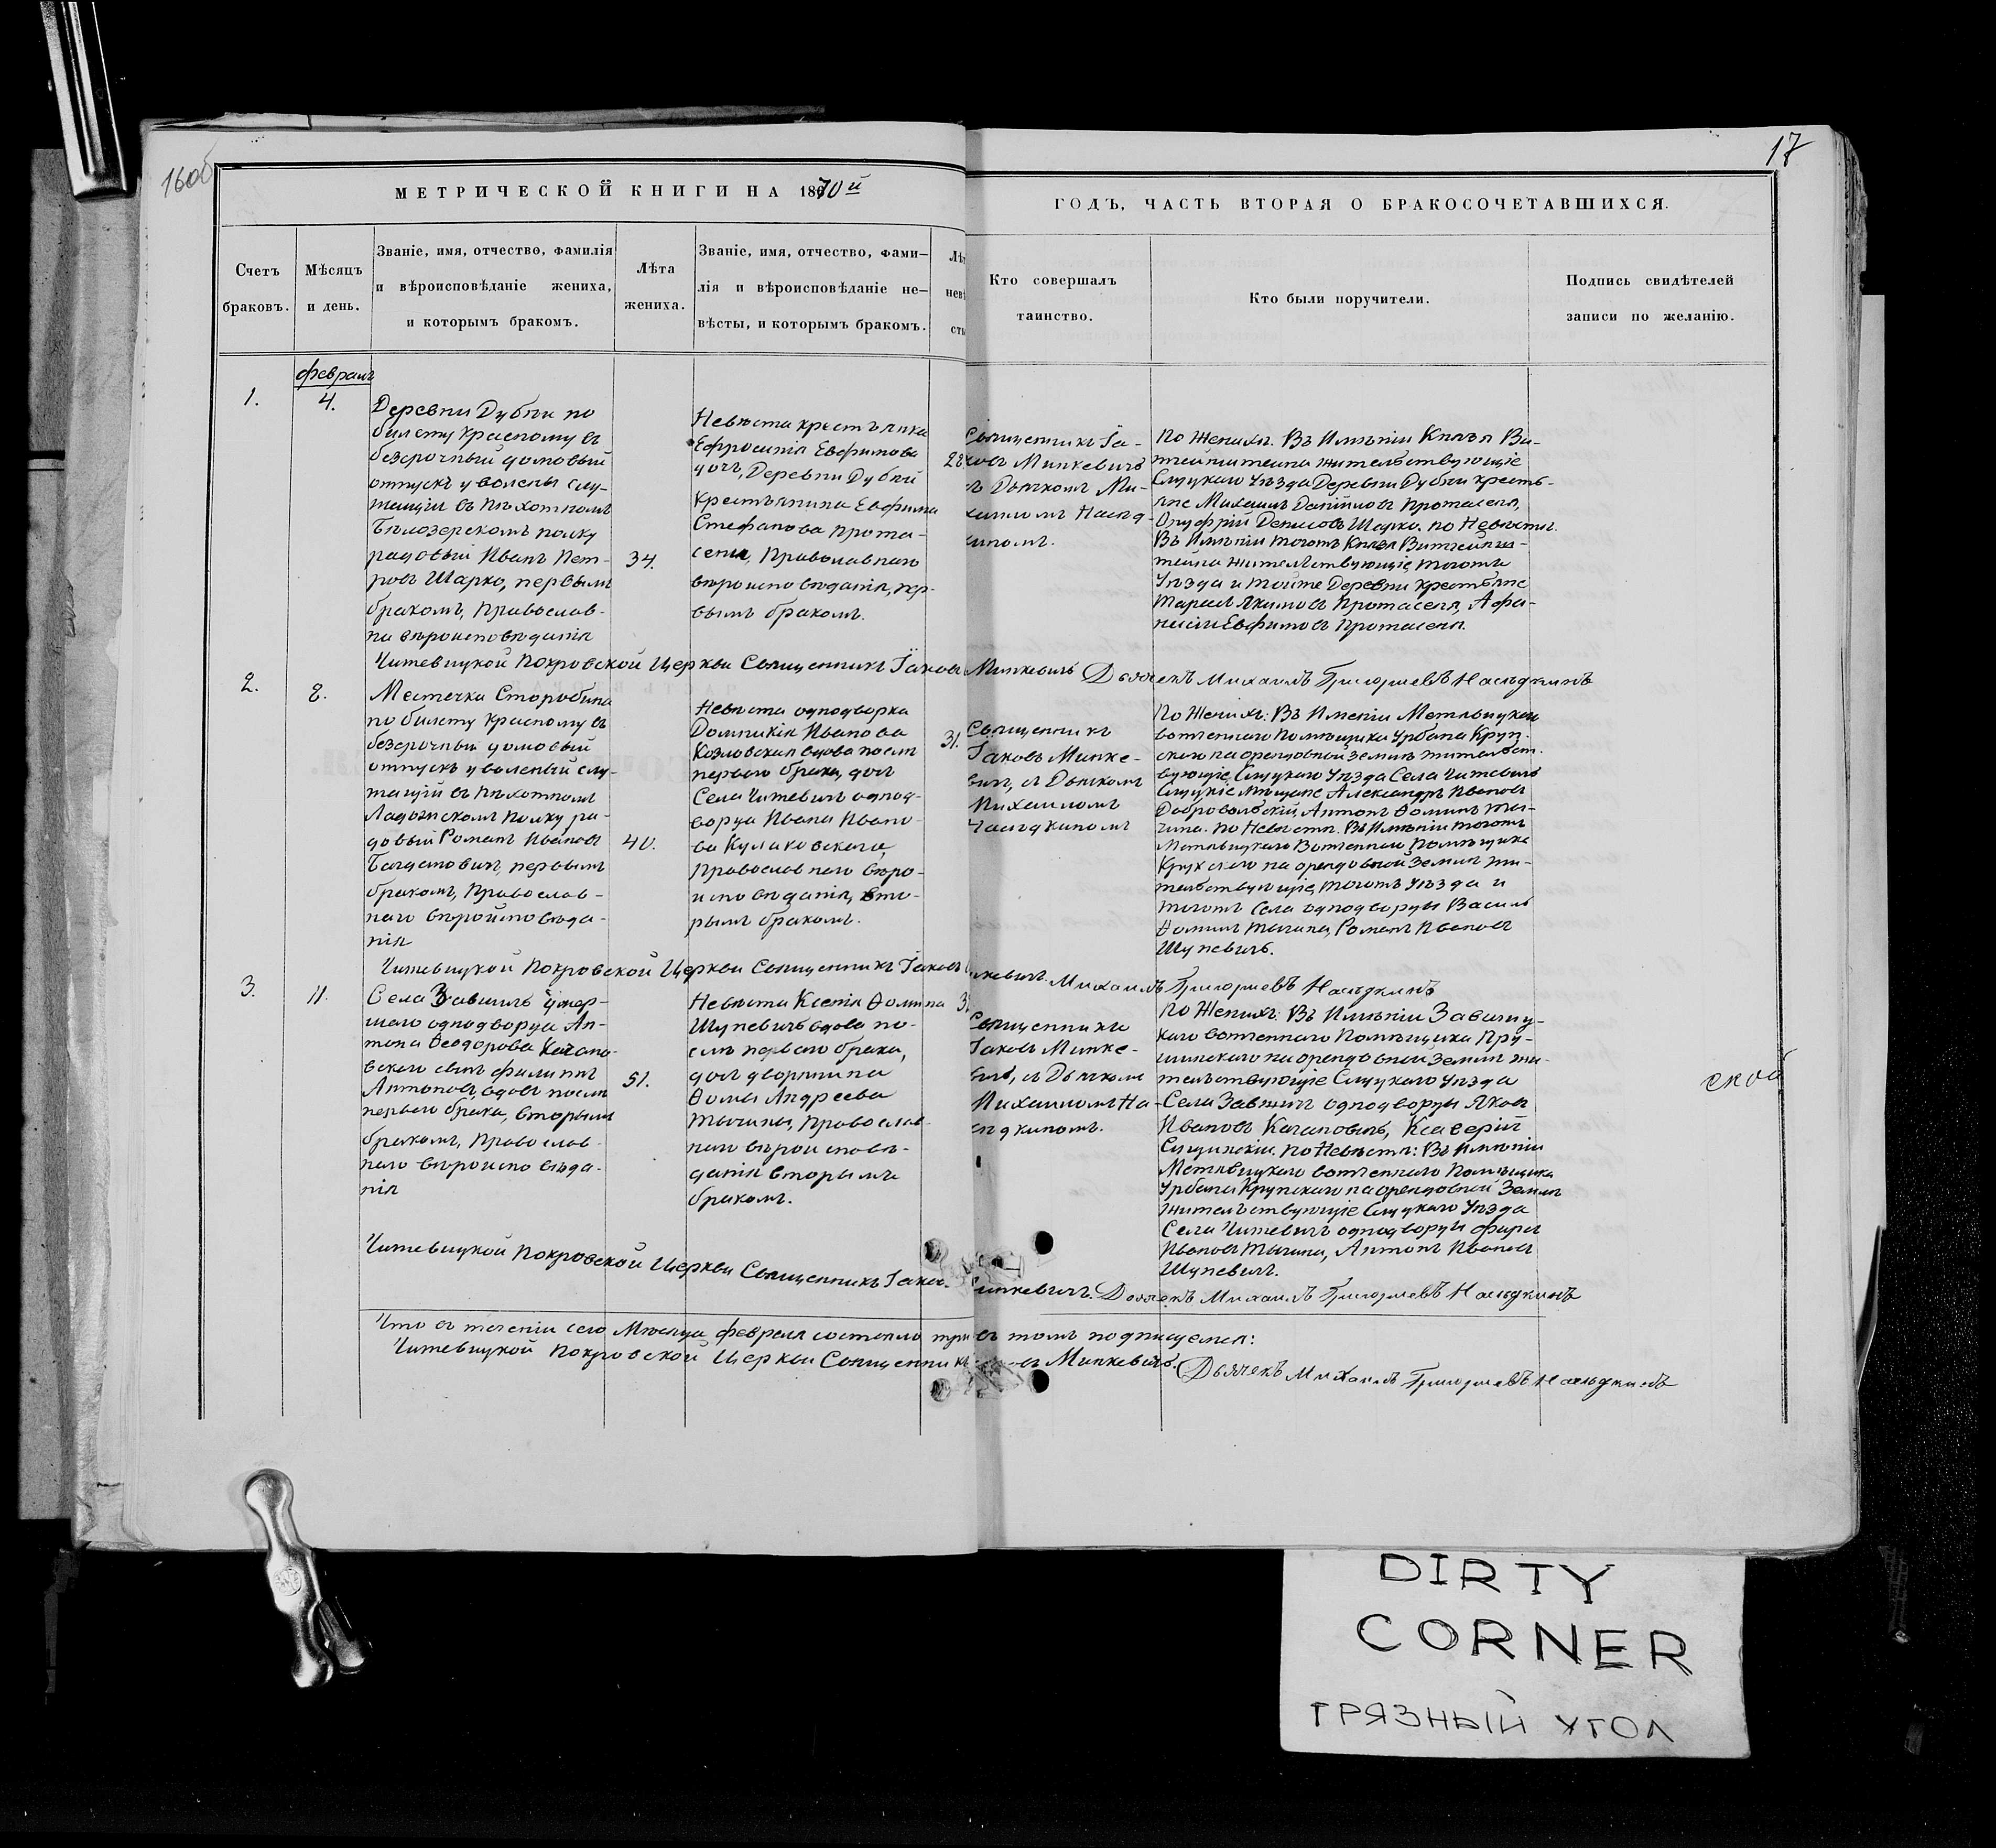 16об
17
МЕТРИЧЕСКОЙ КНИГИ НА 1870й
ГОДЪ, ЧАСТЬ ВТОРАЯ О БРАКОСОЧЕТАВШИХСЯ.
Счетъ
браковъ.
Мѣсяцъ
и день.
Званіе, имя, отчество, фамилія
и вѣроисповѣданіе жениха,
и которымъ бракомъ.
Лѣта
жениха.
Званіе, имя, отчество, фами-
лія и вѣроисповѣданіе не-
вѣсты, и которымъ бракомъ.
Лѣт
невѣ
сты
Кто совершалъ
таинство.
Кто были поручители.
Подпись свидѣтелей
записи по желанію.
февраль
1.
4.
Деревни Дубеи по
билету красному въ
безсрочный домовый
отпускъ уволены слу-
жащій въ Пѣхотномъ
Бѣлозерскомъ полку
рядовый Иванъ Пет-
ровъ Шарко, первымъ
бракомъ, Православ-
на вѣроисповѣданія
34.
Невѣста крестьянка
Ефросинія Евфимова
дочь, Деревни Дубеи
Крестьянина Евфима
Стефанова Прота-
сеня, Православнаго
вѣроисповѣданія, пер-
вымъ бракомъ.
22
Священникъ Іа-
ковъ Минкевичъ
съ Дьячкомъ Ми-
хаиломъ Наслѣд-
киномъ.
По Женихѣ. Въ Имѣніи Князя Ви-
тгейнштейна жительствующіе
Слуцкаго Уѣзда Деревни Дубеи кресть-
яне Михаилъ Даніиловъ Протасеня,
Онуфрій Денисовъ Шарко. по Невѣстѣ.
Въ Имѣніи тогожъ Князя Витгейнш-
тейна жительствующіе, тогожъ
Уѣзда и тойже Деревни Крестьяне
Тарасъ Якимовъ Протасеня, Афа-
насій Евфимовъ Протасеня.
Читевицкой Покровской Церкви Священникъ Іаковъ Минкевичъ Дьячекъ Михаилъ Григорьевъ Наслѣдкинъ
2.
8.
Местечка Старобина
по билету красному въ
безсрочный домовый
отпускъ уволеный слу-
жащій въ Пѣхотномъ
Ладожскомъ полку ря-
довый Романъ Ивановъ
Богдановичъ, первымъ
бракомъ, Православ-
наго вѣроисповѣда-
нія
40.
Невѣста однодворка
Домникія Иванова
Козловская вдова послѣ
перваго брака, дочь
Села Читевичъ однод-
ворца Ивана Ивано-
ва Кулаковскаго,
Православнаго вѣро-
исповѣданія, вто-
рымъ бракомъ.
31.
Священникъ
Іаковъ Минке-
вичъ, съ Дьячкомъ
Михаиломъ
Наслѣдкиномъ
По Женихѣ: Въ Имѣніи Метявицкой
вотченнаго Помѣщика Урбана Круп-
скаго на арендовной Землѣ жительст-
вующіе, Слуцкаго Уѣзда Села Читевичъ
Слуцкіе Мѣщане Александръ Ивановъ
Добровольскій, Антонъ Ѳоминъ Ты-
чина. по Невѣстѣ. Въ Имѣніи тогожъ
Метявицкаго Вотченнаго Помѣщика
Крупскаго на арендовной Землѣ жи-
тельствующіе, тогожъ Уѣзда и
тогожъ Села однодворцы Василь
Ѳоминъ Тычина, Романъ Ивановъ
Шуневичъ.
Читевицкой Покровской Церкви Священникъ Іаковъ Минкевичъ. Михаилъ Григорьевъ Наслѣдкинъ
3.
11.
Села Завшичъ умер-
шаго однодворца Ан-
тона Ѳеодорова Качано-
вскаго сынъ Филиппъ
Антоновъ, вдовъ послѣ
перваго брака, вторымъ
бракомъ, Православ-
наго вѣроисповѣда-
нія
51.
Невѣста Ксенія Ѳомина
Шуневичъ вдова по-
слѣ перваго брака,
дочь дворянина
Ѳомы Андреева
Тычины, Православ-
наго вѣроисповѣ-
данія вторымъ
бракомъ.
3
Священникъ
Іаковъ Минке-
вичъ, съ Дьячкомъ
Михаиломъ На-
слѣдкиномъ.
По Женихѣ: Въ Имѣніи Завшиц-
каго вотченнаго Помѣщика Пру-
шинскаго на арендовной Землѣ жи-
тельствующіе Слуцкаго Уѣзда
Села Завшичъ однодворцы Яковъ
Ивановъ Качановичъ, Ксаверій
по Невѣстѣ: Въ Имѣніи
Метявицкаго вотченнаго Помѣщика
Урбана Крупскаго на арендовной Землѣ
жительствующіе Слуцкаго Уѣзда
Села Читевичъ однодворцы
Ивановъ Тычина, Антонъ Ивановъ
Шуневичъ.
ской
Читевицкой Покровской Церкви Священникъ Іаковъ Минкевичъ. Дьячекъ Михаилъ Григорьевъ Наслѣдкинъ
Что въ теченіи сего Мѣсяца февраля состояло три въ томъ подписуемся:
Читевицкой Покровской Церкви Священникъ Минкевичъ. Дьячекъ Михаилъ Григорьевъ Наслѣдкинъ
DIRTY
CORNER
ГРЯЗНЫЙ УГОЛ